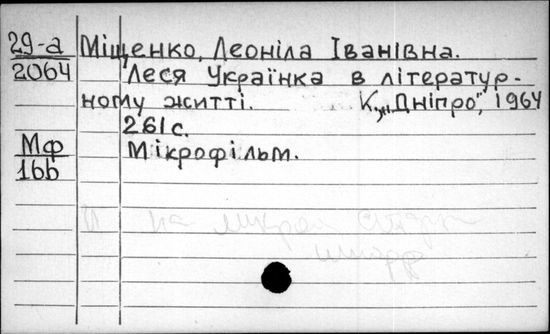 29-а Міщенко, Леоніла Іванівна.
2064 Леся Українка в літератур-
ному житті. К., „Дніпро", 1964
261 с.
Мф Мікрофільм.
166